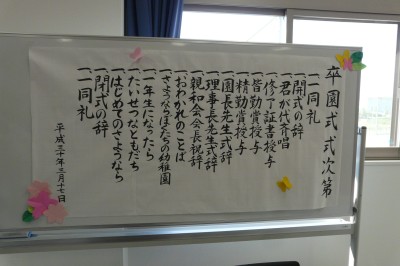 卒園式式次第
一、一同礼
一、開式の辞
一、君が代斉唱
一、修了証書授与
一、皆勤賞授与
一、精勤賞授与
一、園長先生式辞
一、理事長先生式辞
一、親和会会長祝辞
一、おわかれのことば
一、さよならぼくたちの幼稚園
一、一年生になったら
一、たいせつなともだち
一、はじめてのさようなら
一、閉式の辞
一、一同礼
平成三十年三月十七日